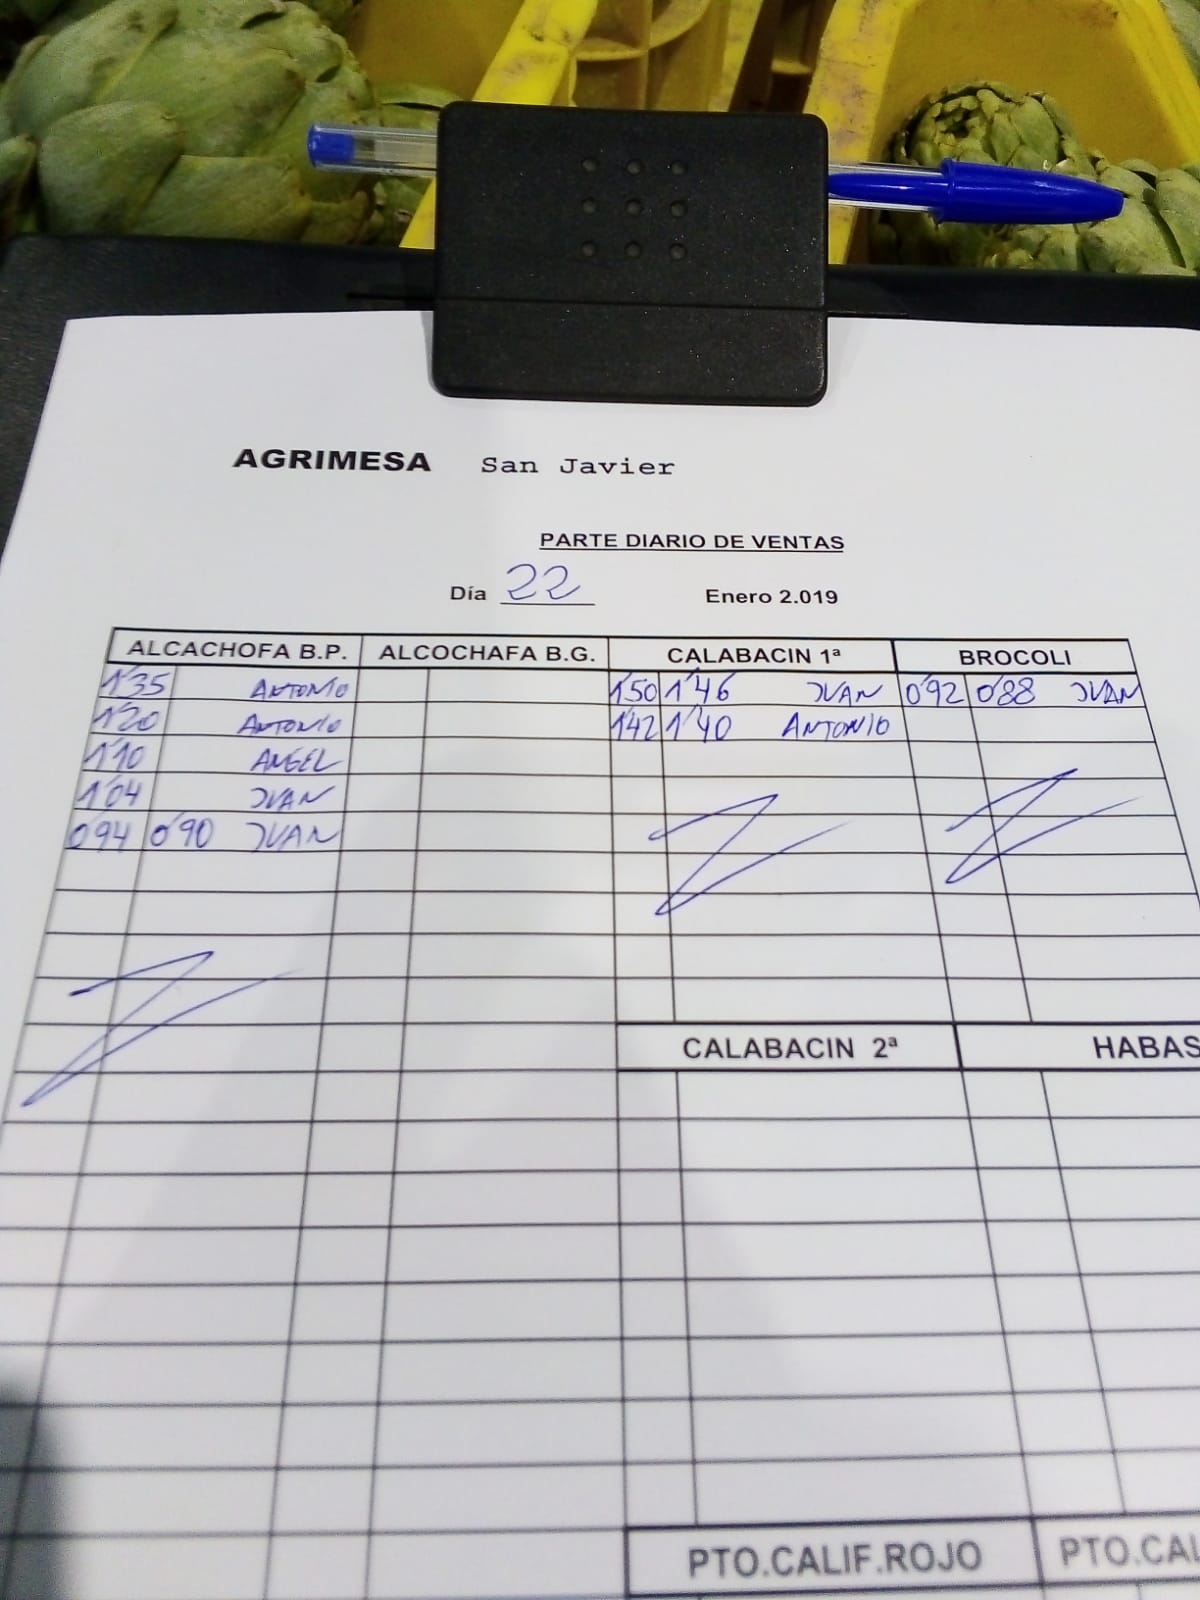 AGRIMESA San Javier
PARTE DIARIO DE VENTAS
Día 22 Enero 2.019
ALCACHOFA B.P. ALCOCHAFA B.G. CALABACIN 1ª BROCOLI
1'35 ANTONIO 1'50 1'46 JUAN 0'92 0'88 JUAN
1'20 ANTONIO 1'42 1'40 ANTONIO
1'10 ANGEL
1'04 JUAN
0'94 0'90 JUAN
CALABACIN 2ª HABAS
PTO.CALIF.ROJO PTO.CAL